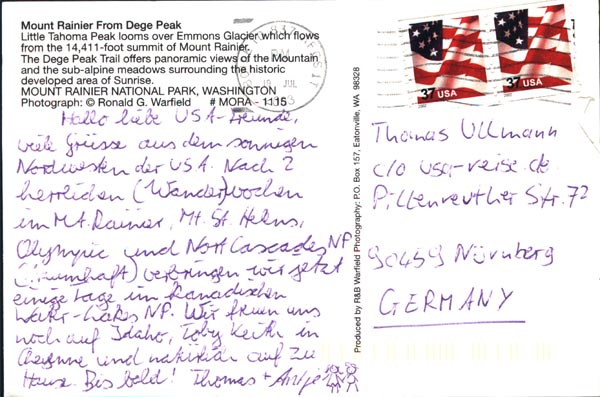 Mount Rainier From Dege Peak
Little Tahoma Peak looms over Emmons Glacier which flows
from the 14,411-foot summit of Mount Rainier.
The Dege Peak Trail offers panoramic views of the Mountain
and the sub-alpine meadows surrounding the historic
developed area of Sunrise.
MOUNT RAINIER NATIONAL PARK, WASHINGTON
Photograph: © Ronald G. Warfield # MORA - 1115
Hallo liebe USA-Freunde,
viele Grüsse aus dem sonnigen
Nordwesten der USA. Nach 2
herrlichen (Wander)wochen
im Mt. Rainier, Mt. St. Helens,
Olympic und North Cascades NP
(traumhaft) verbringen wir jetzt
einige Tage im kanadischen
Water-Lakes NP. Wir freuen uns
noch auf Idaho, Toby Keith in
Cheyenne und natürlich auf zu
Hause. Bis bald! Thomas + Antje
Produced by R&B Warfield Photography: P.O. Box 157, Eatonville, WA 98328
JUL
37 USA
37 USA
Thomas Ullmann
c/o usa-reise.de
Pillenreuther Str. 72
90459 Nürnberg
GERMANY